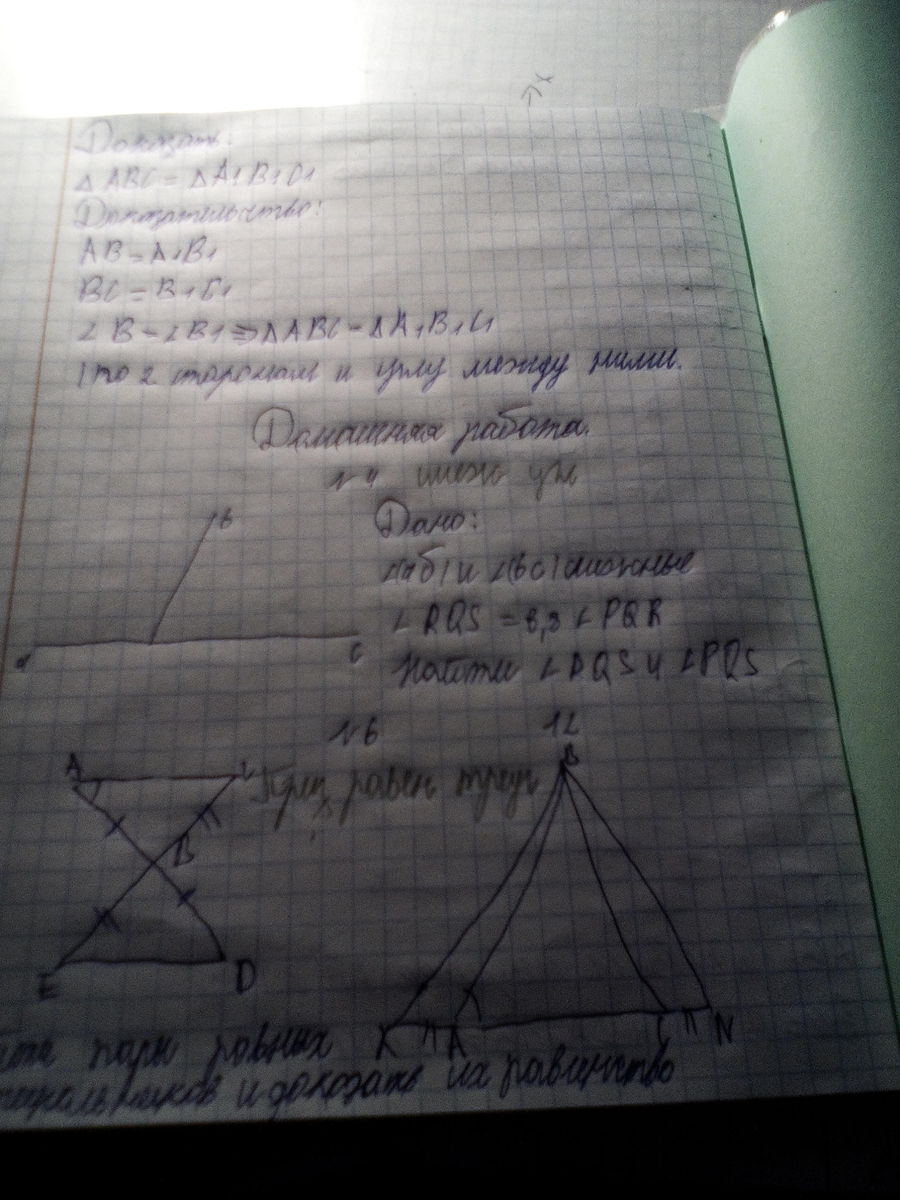 Доказать:
△ ABC = △ A1B1C1
Доказательство:
AB = A1B1
BC = B1C1
∠ B = ∠ B1 ⇒ △ ABC = △ A1B1C1
по 2 сторонам и углу между ними.
Домашняя работа.
N 4 смеж угл
Дано:
и ∠(bc) смежные
∠ RQS = 8,3 ∠ PQR
Найти ∠ RQS и ∠ PQS
a b c
N 6 12
равен треуг
A B E D
B K A C N
пары равных
и доказать их равенство